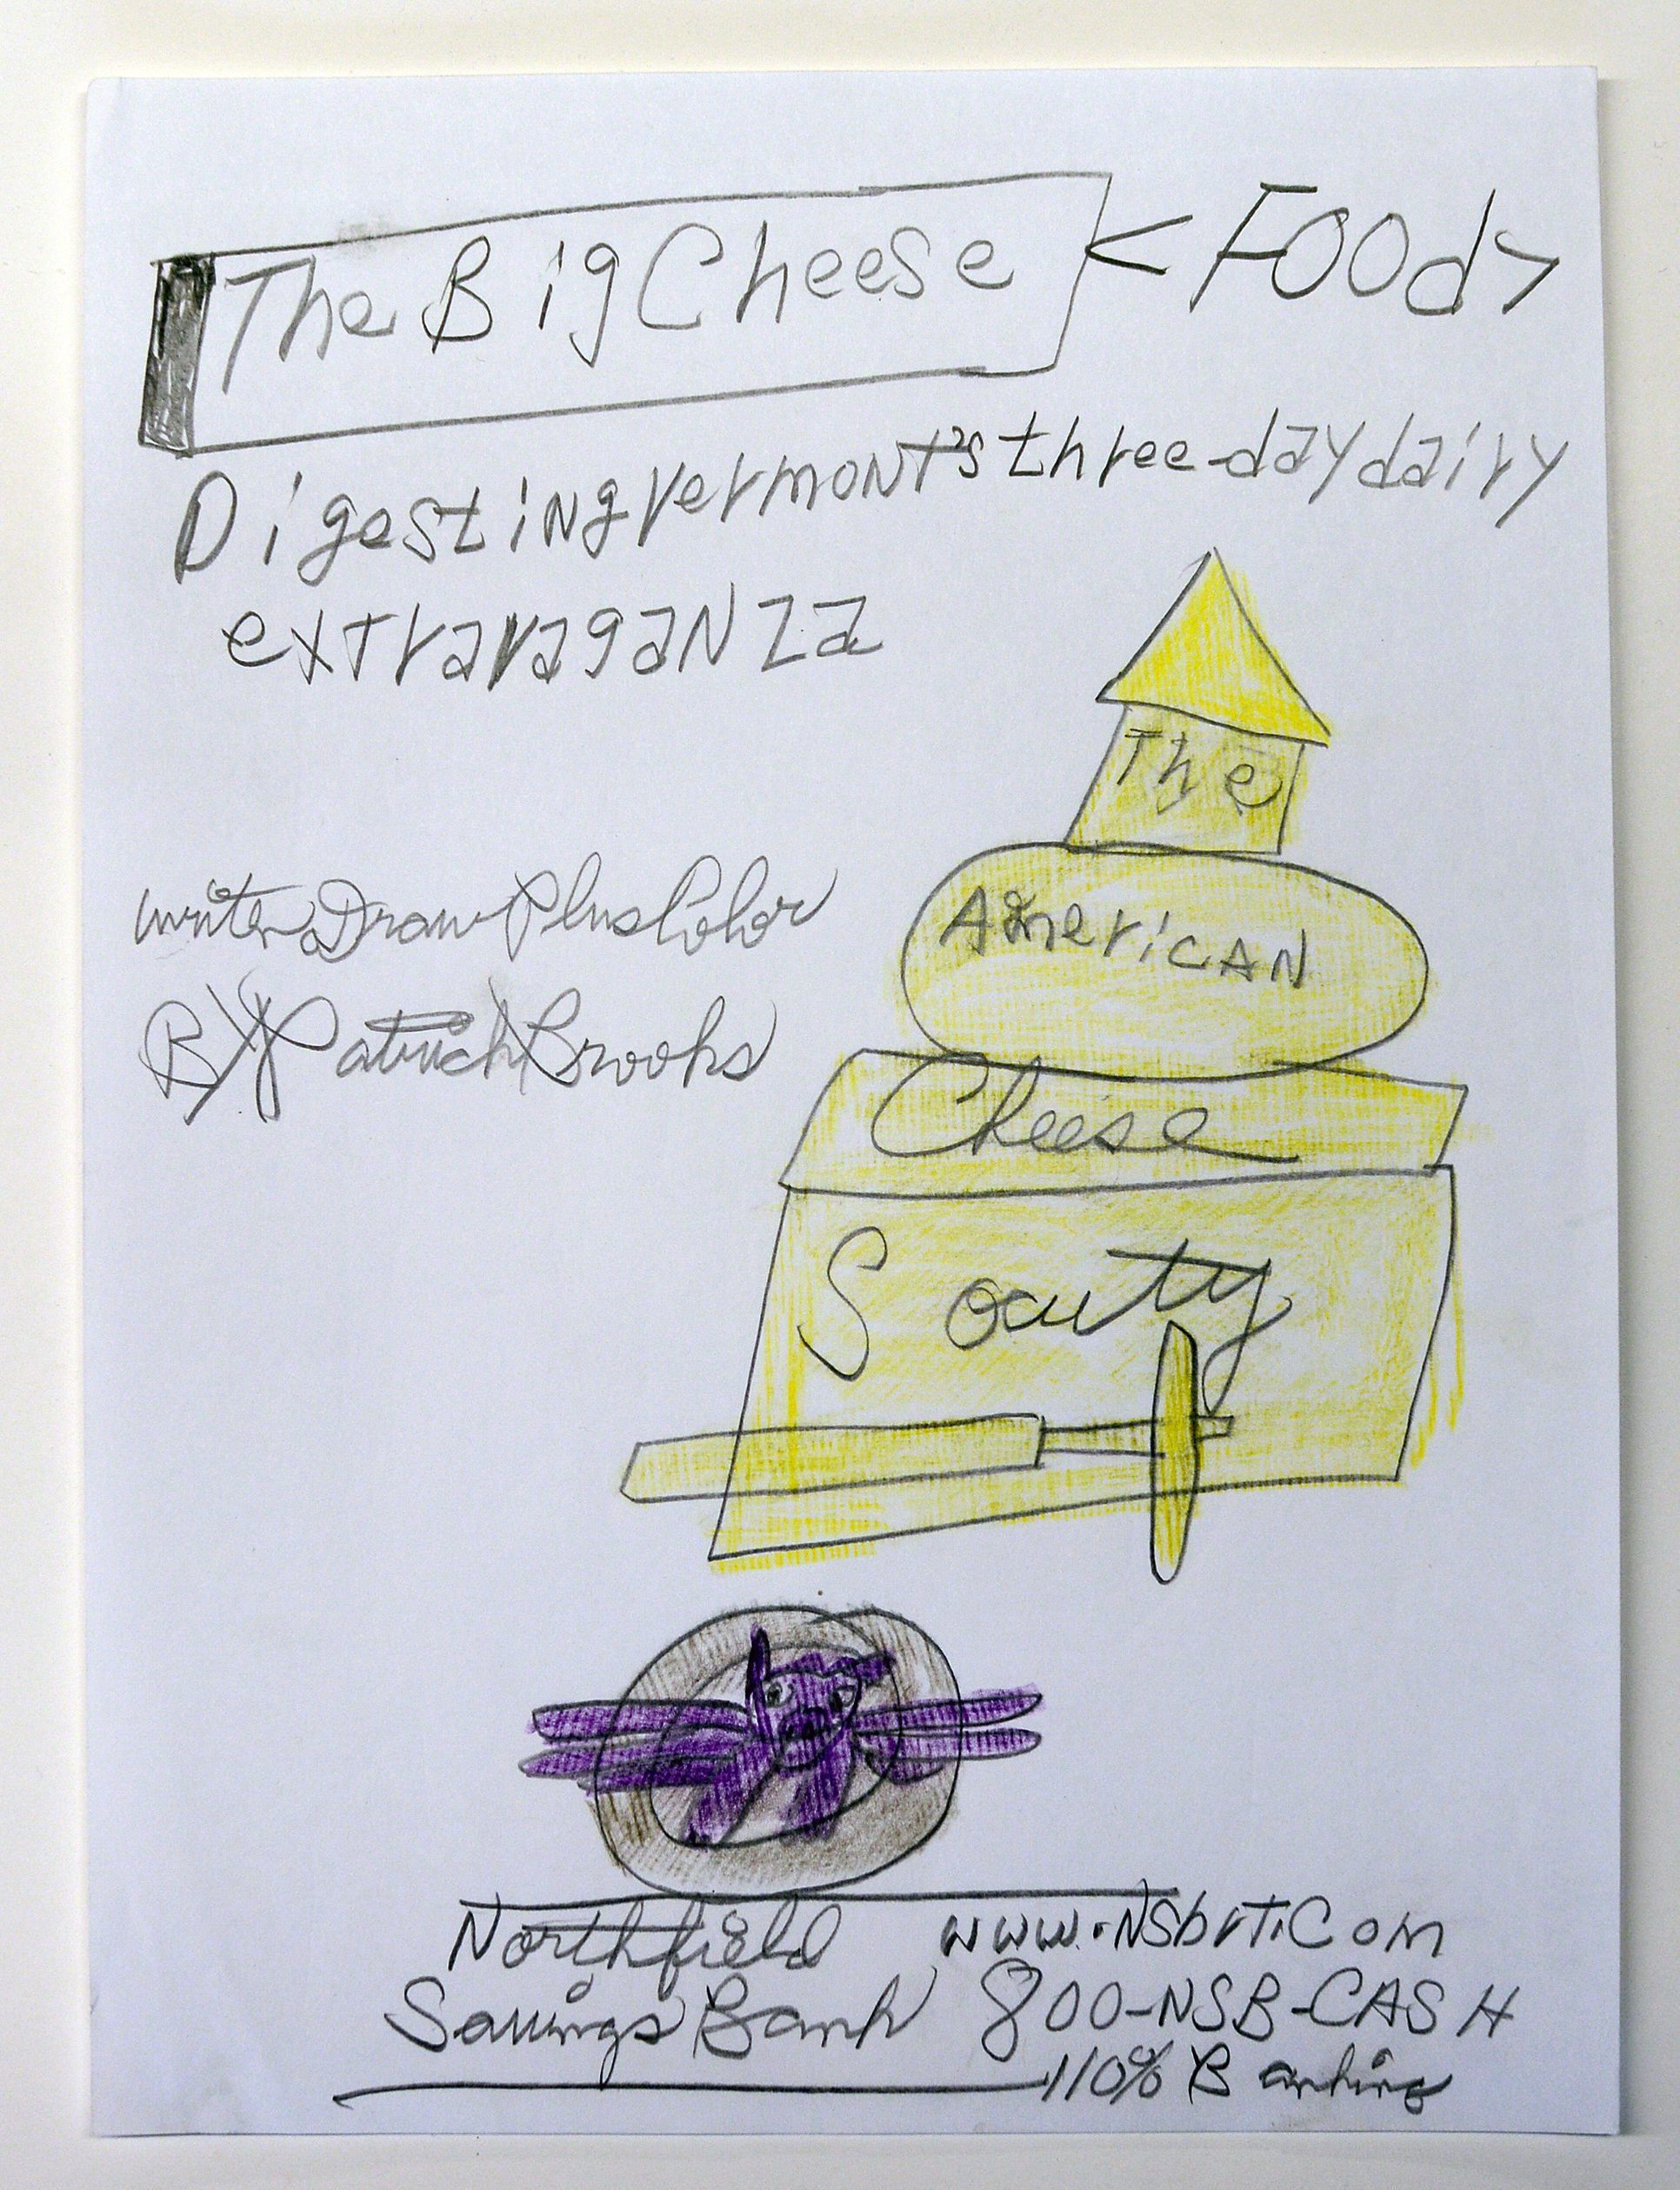 The Big Cheese <FOOd>
Digesting vermont's three-day dairy
extravaganza
The
writen Draw Plus Color
American
BY Patrick Brooks
Cheese
Society
Northfield www.NSbvt.Com
Savings Bank 800-NSB-CASH
110% Banking